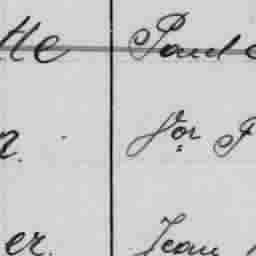 tte Paul
n. Jos F
er. Jean